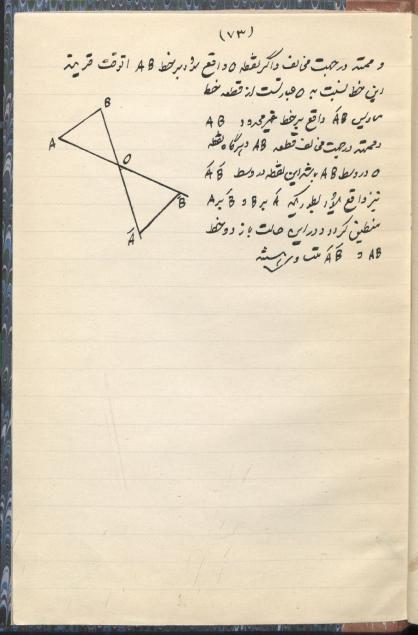 (٧٣)
و ممتد در جهت مخالف و اگر نقطه O واقع شود بر خط AB آنوقت قرینه
این خط نسبت به O عبارتست از قطعه خط
مساوی AB واقع بر خط غیر محدود AB
و ممتد در جهت مخالف قطعه AB و هرگاه نقطه
O در وسط AB باشد این نقطه در وسط A̅B̅
نیز واقع شود بطوریکه A̅ بر B و B̅ بر A
منطبق گردد و در این حالت باز دو خط
AB و A̅B̅
B
A
O
B̅
A̅